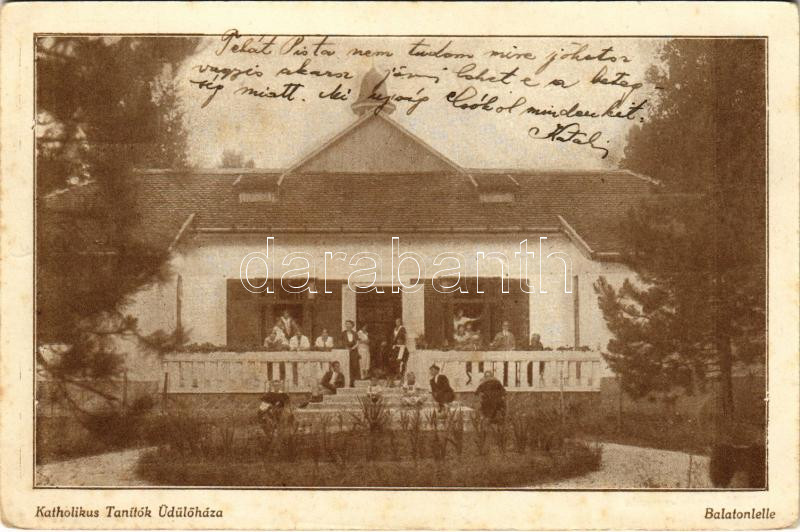 Tehát Pista nem tudom mire jöhetsz
vagyis akarsz jönni lehet e a beteg-
ség miatt. Mi ujság Csókol mindenkit.
Katalin
darabanth
Katholikus Tanítók Üdülőháza
Balatonlelle